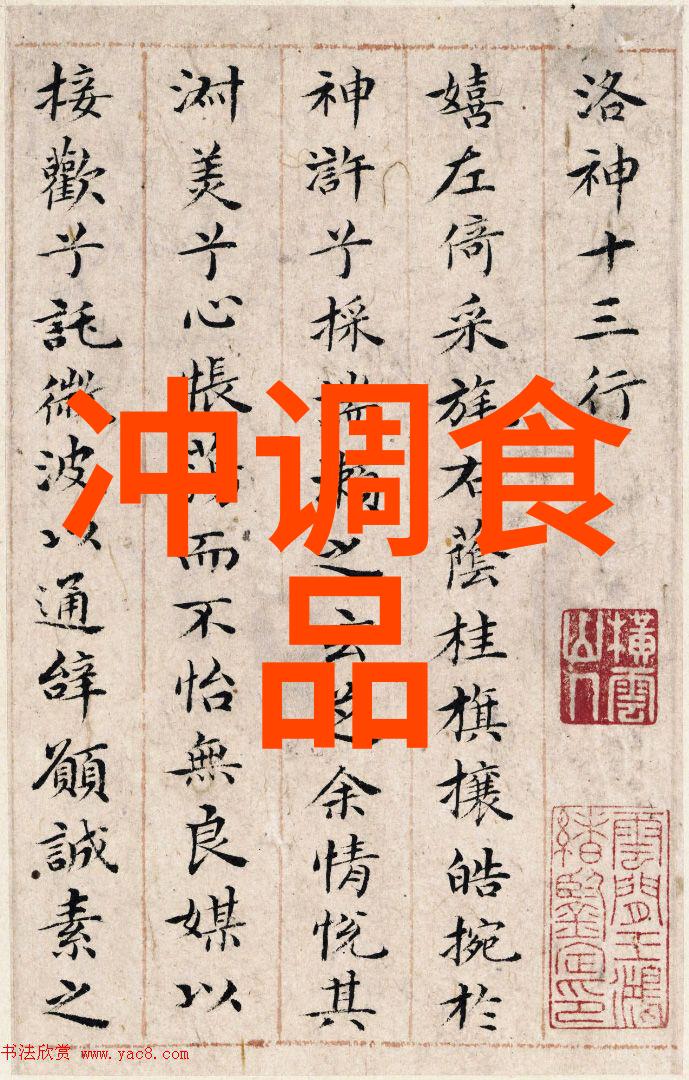 洛神十三行
嬉左倚采旄右蔭桂旗攘皓捥於
神滸兮採湍瀨之玄芝余情悅其
淑美兮心振蕩而不怡無良媒以
接歡兮託微波以通辭願誠素之
冲调食
品
橫雲
山人
雲間王鴻
緒鑒定印
书法欣赏 www.yac8.com